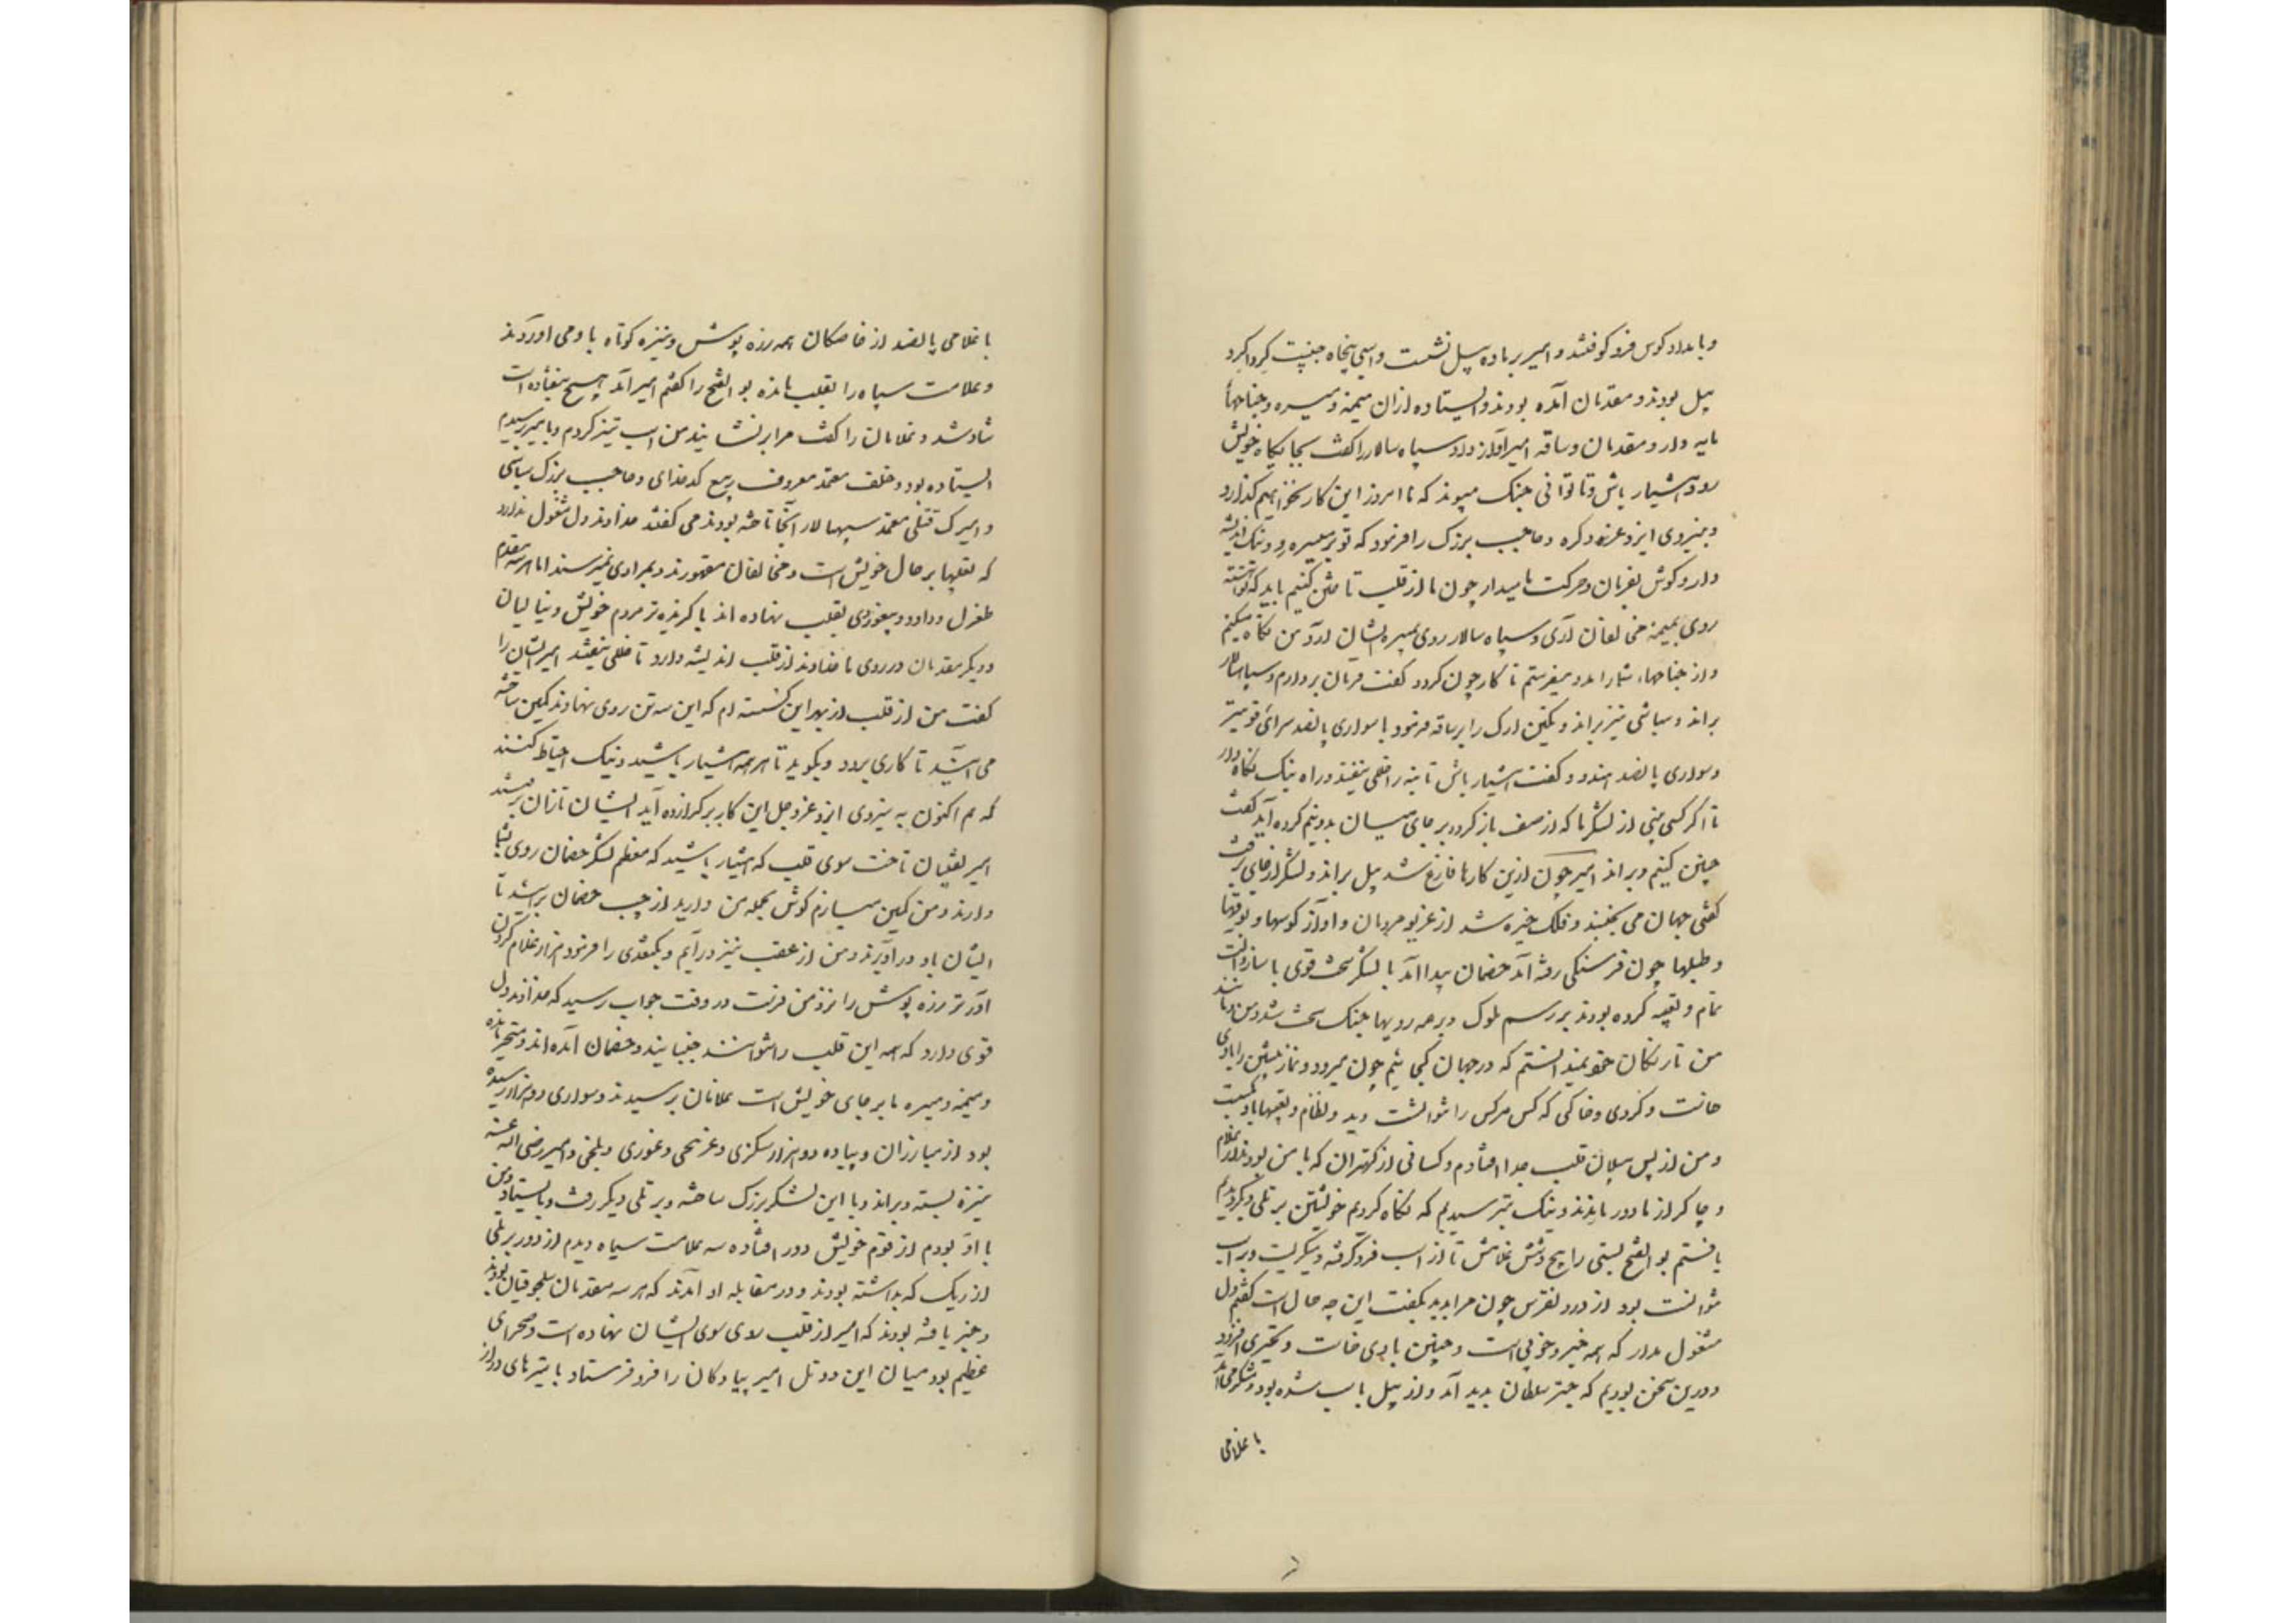 وبامداد کوس فرو کوفتند و امیر بر ماده پیل نشست و اسپی پنجاه جنیبت کرداکرد
پیل بودند و مقدمان آمده بودند و ایستاده ازان میمنه و میسره و جناحها
مایه دار و مقدمان و ساقه امیر آواز داد و سپاه سالار را کفت بجایکاه خویش
رو و هشیار باش و تا توانی جنک مپیوند که ما امروز این کار بخواهیم کذارد
و بنیروی ایزد عز ذکره و حاجب بزرک را فرمود که تو بر میسره رو و نیک اندیشه
دار و کوش بفرمان و حرکت ما میدار چون ما از قلب تاختن کنیم باید که تو آهسته
روی بمیمنه مخالفان آری و سپاه سالار روی بمیسره ایشان آرد و من نکاه میکنم
و از جناحها، شما را مدد میفرستم تا کار چون کردد کفت فرمان بردارم و سپاهسالار
براند و سباشی نیز براند و بکتکین ارک را بر ساقه فرمود با سواری پانصد سرائی قوی‌تر
و سواری پانصد هندو و کفت هشیار باش تا بنه را خللی نیفتد و راه نیک نکاه دار
تا اکر کسی بینی از لشکر ما که از صف باز کردد بر جای میان بدو نیم کرده آید کفت
چنین کنیم و براند امیر چون ازین کارها فارغ شد پیل براند و لشکر از جای برفت
کفتی جهان می بجنبد و فلک خیره شد از غریو مردمان و آواز کوسها و بوقها
و طبلها چون فرسنکی رفته آمد خصمان پیدا آمد با لشکر سخت قوی با ساز و آلت
تمام و تعبیه کرده بودند بر رسم ملوک و بر همه رویها جنک سخت شد و من و مانند
من تازیکان خود نمیدانستیم که در جهان کجائیم و چون میرود و نماز پیشین را بادی
خاست و کردی و خاکی که کس مر کس را نتوانست دید و نظام تعبیها باد بکسست
و من از پس پیلان قلب جدا افتادم و کسانی از کهتران که با من بودند از غلام
و چاکر از ما دور ماندند و نیک بترسیدیم که نکاه کردیم خویشتن بر تلی دیکر دیدیم
یافتم بو الفتح بستی را پنج و شش غلامش تا از اسب فرو کرفته و میکریست و بر اسب
نتوانست بود از درد نقرس چون مرا بدید بکفت این چه حال است کفتم دل
مشغول مدار که همه خیر و خوبی است و چنین بادی خاست و تحیری افزود
و درین سخن بودیم که چتر سلطان پدید آمد و از پیل باسب شده بود و متنکر می آمد
با غلامی
با غلامی پانصد از خاصکان همه زره پوش و نیزه کوتاه با وی می آوردند
و علامت سیاه را بقلب مانده بو الفتح را کفتم امیر آمد هیچ نیفتاده است
شاد شد و غلامان را کفت مرا برنشانید من اسب تیز کردم و بامیر رسیدم
ایستاده بود و خلف معتمد معروف ربیع کدخدای و حاجب بزرک سباشی
و امیرک قتلی معتمد سپهسالار آنجا تاخته بودند می کفتند خداوند دل مشغول ندارد
که تعبیها بر حال خویش است و مخالفان مقهورند و بمرادی نمیرسند اما هر سه مقدم
طغرل و داود و یبغو روی بقلب نهاده اند با کزیده تر مردم خویش و ینالیان
و دیکر مقدمان در روی ما خداوند از قلب اندیشه دارد تا خللی نیفتد امیر ایشان را
کفت من از قلب از بهر این کسسته ام که این سه تن روی نهادند کمین ساخته
می آید تا کاری برود و بکوید تا هر همه هشیار باشید و نیک احتیاط کنند
که هم اکنون به نیروی ایزد عز و جل این کار برکزارده آید ایشان تازان برفتند
امیر نقیبان تاخت سوی قلب که هشیار باشید که معظم لشکر خصمان روی بشما
دارند و من کمین میسازم کوش بجمله من دارید از چپ خصمان برآید تا
ایشان باو درآویزند و من از عقب نیز درآیم و بکتغدی را فرمود هزار غلام کردن
آورتر زره پوش را نزد من فرست در وقت جواب رسید که خداوند دل
قوی دارد که همه این قلب را نتوانند جنبانید و خصمان آمده اند و متحیر مانده
و میمنه و میسره ما بر جای خویش است غلامان برسیدند و سواری دو هزار رسیده
بود از مبارزان و پیاده دو هزار سکزی و غزنیچی و غوری و بلخی و امیر رضی الله عنه
نیزه بستد و براند و با این لشکر بزرک ساخته و بر تلی دیکر رفت و بایستاد و من
با او بودم از قوم خویش دور افتاده سه علامت سیاه دیدم از دور بر تلی
از ریک که بداشته بودند و در مقابله او آمدند که هر سه مقدمان سلجوقیان بودند
و خبر یافته بودند که امیر از قلب روی سوی ایشان نهاده است و صحرای
عظیم بود میان این دو تل امیر پیادکان را فرو فرستاد با نیزهای دراز